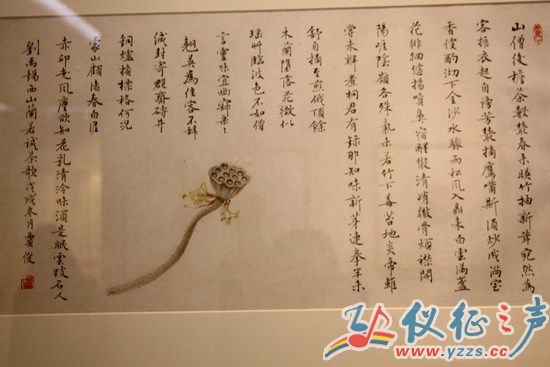 山僧後檐茶數叢春來映竹抽新茸宛然為
客振衣起自傍芳叢摘鷹嘴斯須炒成滿室
香便酌沏下金沙水驟雨松風入鼎來白雲滿盞
花徘徊悠揚噴鼻宿酲散清峭徹骨煩襟開
陽崖陰嶺各殊氣未若竹下莓苔地炎帝雖
嘗未解煮桐君有籙那知味新芽連拳半未
舒自摘至煎俄頃餘
木蘭墮露花微似
瑤草臨波色不如僧
言靈味宜幽寂采采
翹英為佳客不辭
緘封寄郡齋磚井
銅爐損標格何況
蒙山顧渚春白泥
赤印走風塵欲知花乳清泠味須是眠雲跂石人
劉禹錫西山蘭若試茶歌戊戌冬月賈俊
仪征之声
www.yzzs.cc